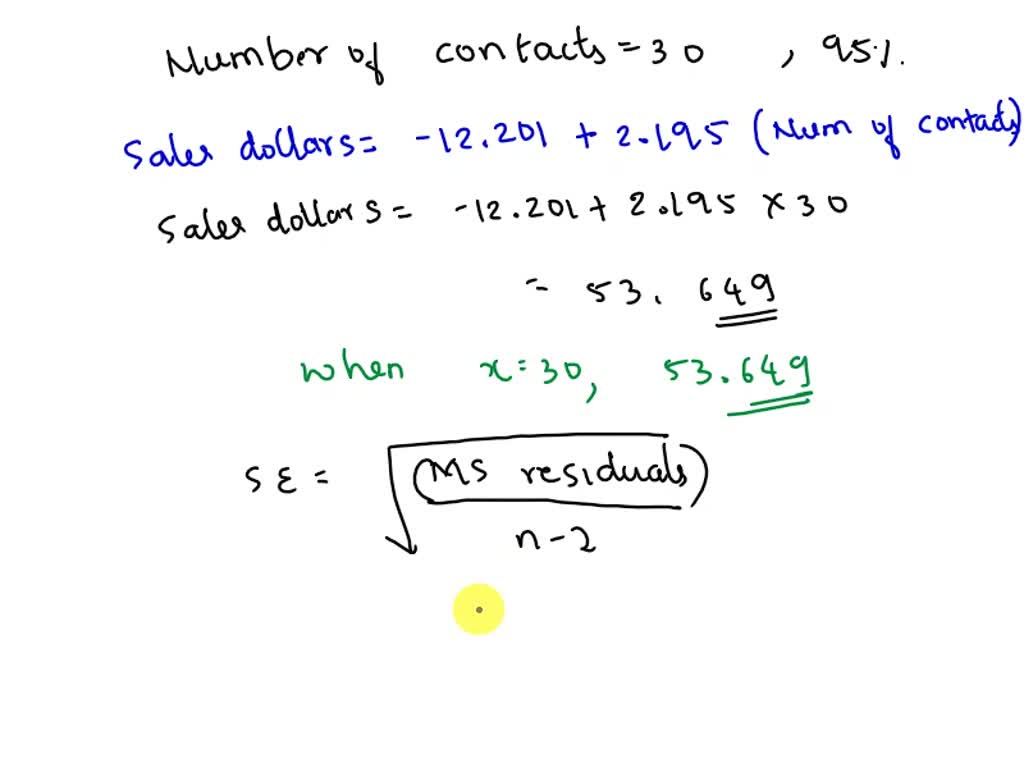 Number of contacts = 30 , 95%.
Sales dollars = -12.201 + 2.195 (Num of contacts)
Sales dollars = -12.201 + 2.195 x 30
= 53.649
when x=30, 53.649
SE = √(MS residuals)
n-2